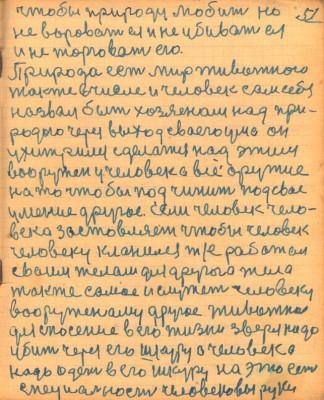 чтобы природу любит но 51
не вороват ея и не убиват ея
и не торговат ею.
Природа ест мир животнаго
также в числе и человек сам себя
назвал быт хозяеном над при-
родою через выход сваего ума он
ухитрился сделатся над этим
вооружен у человека всё оружие
на то чтобы подчинит под свае
умение другое. Если человек чело-
века заставляет чтобы человек
человеку кланился т/е работал
своим телам для другога тела
также самое и служет человеку
вооруженаму другое животное
для спосение в его жизни зверя надо
убит через его шкуру а человека
надо одет в его шкуру на это ест
специалност человековы руки